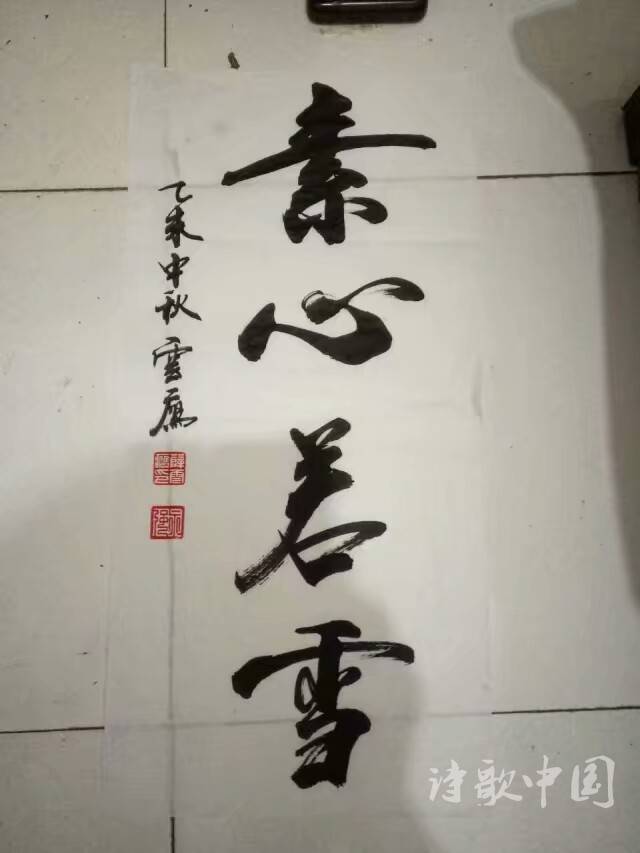 素心若雪
乙未中秋 雲鷹
诗歌中国